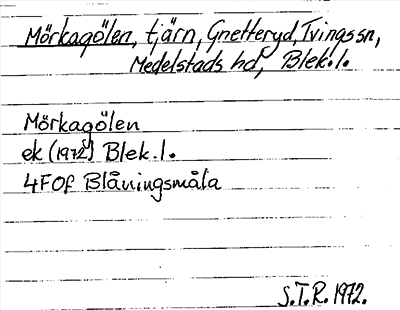 Mörkagölen, tjärn, Gnetteryd, Tvings sn,
Medelstads hd, Blek.l.
Mörkagölen
ek (1972) Blek.l.
4F0f Blåningsmåla
S.T.R. 1972.